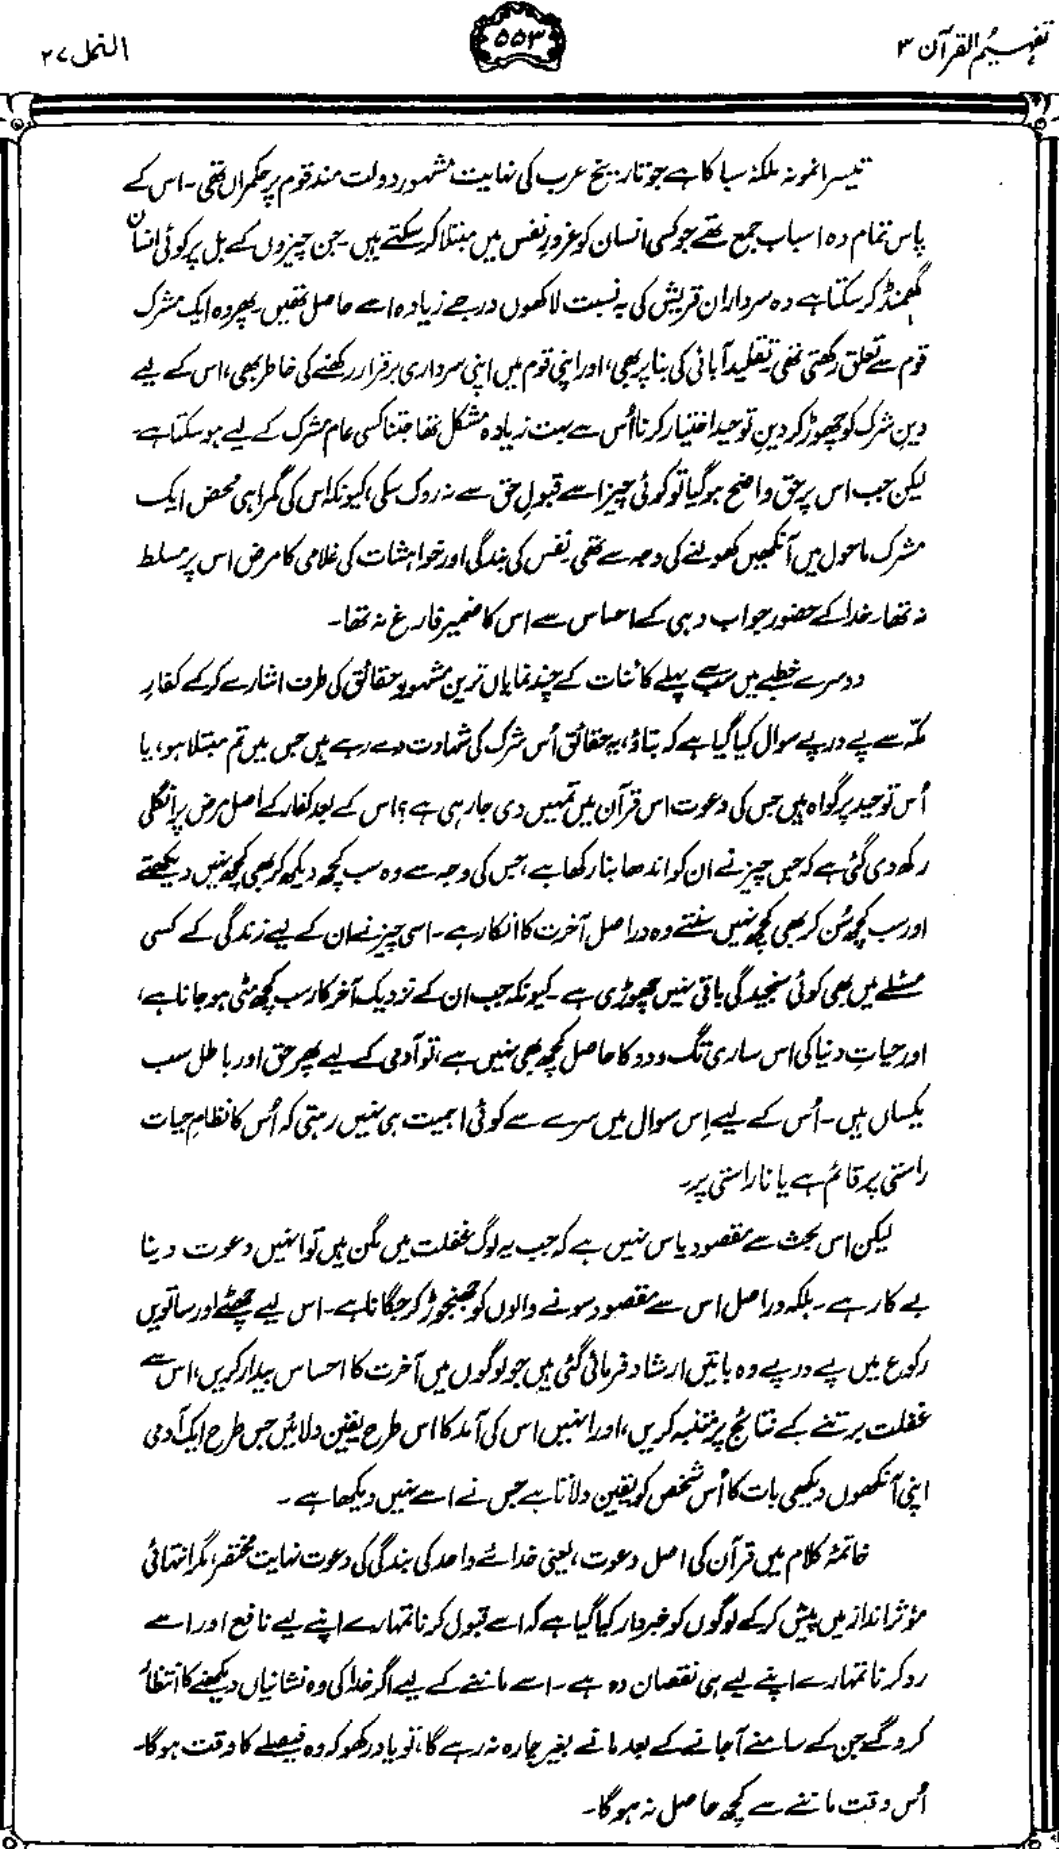 تفہیم القرآن ۳
۵۵۳
النمل ۲۷
تیسرا نمونہ ملکۂ سبا کا ہے جو تاریخ عرب کی نہایت مشہور دولت مند قوم پر حکمراں تھی۔ اس کے
پاس تمام وہ اسباب جمع تھے جو کسی انسان کو غرورِ نفس میں مبتلا کر سکتے ہیں۔ جن چیزوں کے بل پر کوئی انسان
گھمنڈ کر سکتا ہے وہ سردارانِ قریش کی بہ نسبت لاکھوں درجے زیادہ اسے حاصل تھیں۔ پھر وہ ایک مشرک
قوم سے تعلق رکھتی تھی۔ تقلیدِ آبائی کی بنا پر بھی، اور اپنی قوم میں اپنی سرداری برقرار رکھنے کی خاطر بھی، اس کے لیے
دینِ شرک کو چھوڑ کر دینِ توحید اختیار کرنا اُس سے بہت زیادہ مشکل تھا جتنا کسی عام مشرک کے لیے ہو سکتا ہے۔
لیکن جب اس پر حق واضح ہو گیا تو کوئی چیز اسے قبولِ حق سے نہ روک سکی، کیونکہ اس کی گمراہی محض ایک
مشرک ماحول میں آنکھیں کھولنے کی وجہ سے تھی۔ نفس کی بندگی اور خواہشات کی غلامی کا مرض اس پر مسلط
نہ تھا۔ خدا کے حضور جواب دہی کے احساس سے اس کا ضمیر فارغ نہ تھا۔
دوسرے خطبے میں سب سے پہلے کائنات کے چند نمایاں ترین مشہود حقائق کی طرف اشارے کر کے کفارِ
مکّہ سے پے در پے سوال کیا گیا ہے کہ بتاؤ، یہ حقائق اُس شرک کی شہادت دے رہے ہیں جس میں تم مبتلا ہو، یا
اُس توحید پر گواہ ہیں جس کی دعوت اس قرآن میں تمہیں دی جا رہی ہے؟ اس کے بعد کفار کے اصل مرض پر انگلی
رکھ دی گئی ہے کہ جس چیز نے ان کو اندھا بنا رکھا ہے، جس کی وجہ سے وہ سب کچھ دیکھ کر بھی کچھ نہیں دیکھتے
اور سب کچھ سُن کر بھی کچھ نہیں سنتے وہ دراصل آخرت کا انکار ہے۔ اسی چیز نے ان کے لیے زندگی کے کسی
مسئلے میں بھی کوئی سنجیدگی باقی نہیں چھوڑی ہے۔ کیونکہ جب ان کے نزدیک آخر کار سب کچھ مٹی ہو جانا ہے،
اور حیاتِ دنیا کی اس ساری تگ و دو کا حاصل کچھ بھی نہیں ہے، تو آدمی کے لیے پھر حق اور باطل سب
یکساں ہیں۔ اُس کے لیے اِس سوال میں سرے سے کوئی اہمیت ہی نہیں رہتی کہ اُس کا نظامِ حیات
راستی پر قائم ہے یا ناراستی پر۔
لیکن اس بحث سے مقصود یاس نہیں ہے کہ جب یہ لوگ غفلت میں مگن ہیں تو انہیں دعوت دینا
بے کار ہے۔ بلکہ دراصل اس سے مقصود سونے والوں کو جھنجوڑ کر جگانا ہے۔ اس لیے چھٹے اور ساتویں
رکوع میں پے در پے وہ باتیں ارشاد فرمائی گئی ہیں جو لوگوں میں آخرت کا احساس بیدار کریں، اس سے
غفلت برتنے کے نتائج پر متنبہ کریں، اور انہیں اس کی آمد کا اس طرح یقین دلائیں جس طرح ایک آدمی
اپنی آنکھوں دیکھی بات کا اُس شخص کو یقین دلاتا ہے جس نے اسے نہیں دیکھا ہے۔
خاتمۂ کلام میں قرآن کی اصل دعوت، یعنی خدائے واحد کی بندگی کی دعوت نہایت مختصر، مگر انتہائی
مؤثر انداز میں پیش کر کے لوگوں کو خبردار کیا گیا ہے کہ اسے قبول کرنا تمہارے اپنے لیے نافع اور اسے
رد کرنا تمہارے اپنے لیے ہی نقصان دہ ہے۔ اسے ماننے کے لیے اگر خدا کی وہ نشانیاں دیکھنے کا انتظار
کرو گے جن کے سامنے آ جانے کے بعد مانے بغیر چارہ نہ رہے گا، تو یاد رکھو کہ وہ فیصلے کا وقت ہوگا۔
اُس وقت ماننے سے کچھ حاصل نہ ہوگا۔